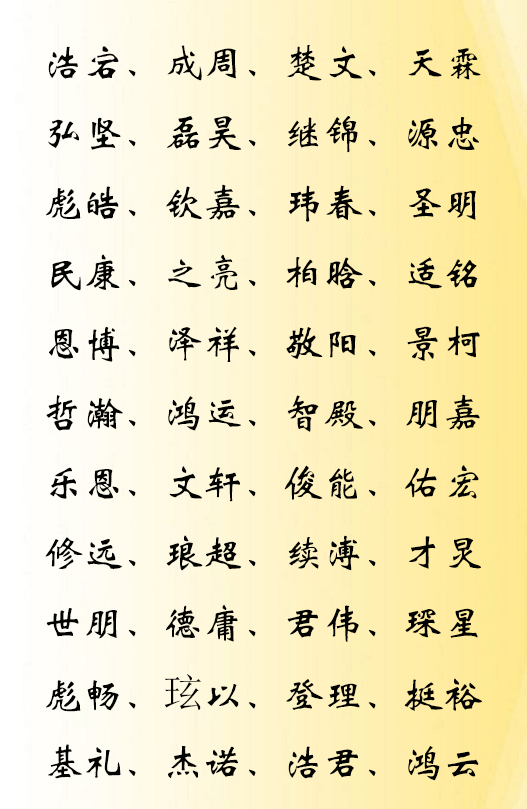 浩宕、成周、楚文、天霖
弘坚、磊昊、继锦、源忠
彪皓、钦嘉、玮春、圣明
民康、之亮、柏晗、适铭
恩博、泽祥、敬阳、景柯
哲瀚、鸿运、智殿、朋嘉
乐恩、文轩、俊能、佑宏
修远、琅超、续溥、才炅
世朋、德庸、君伟、琛星
彪畅、玹以、登理、挺裕
基礼、杰诺、浩君、鸿云